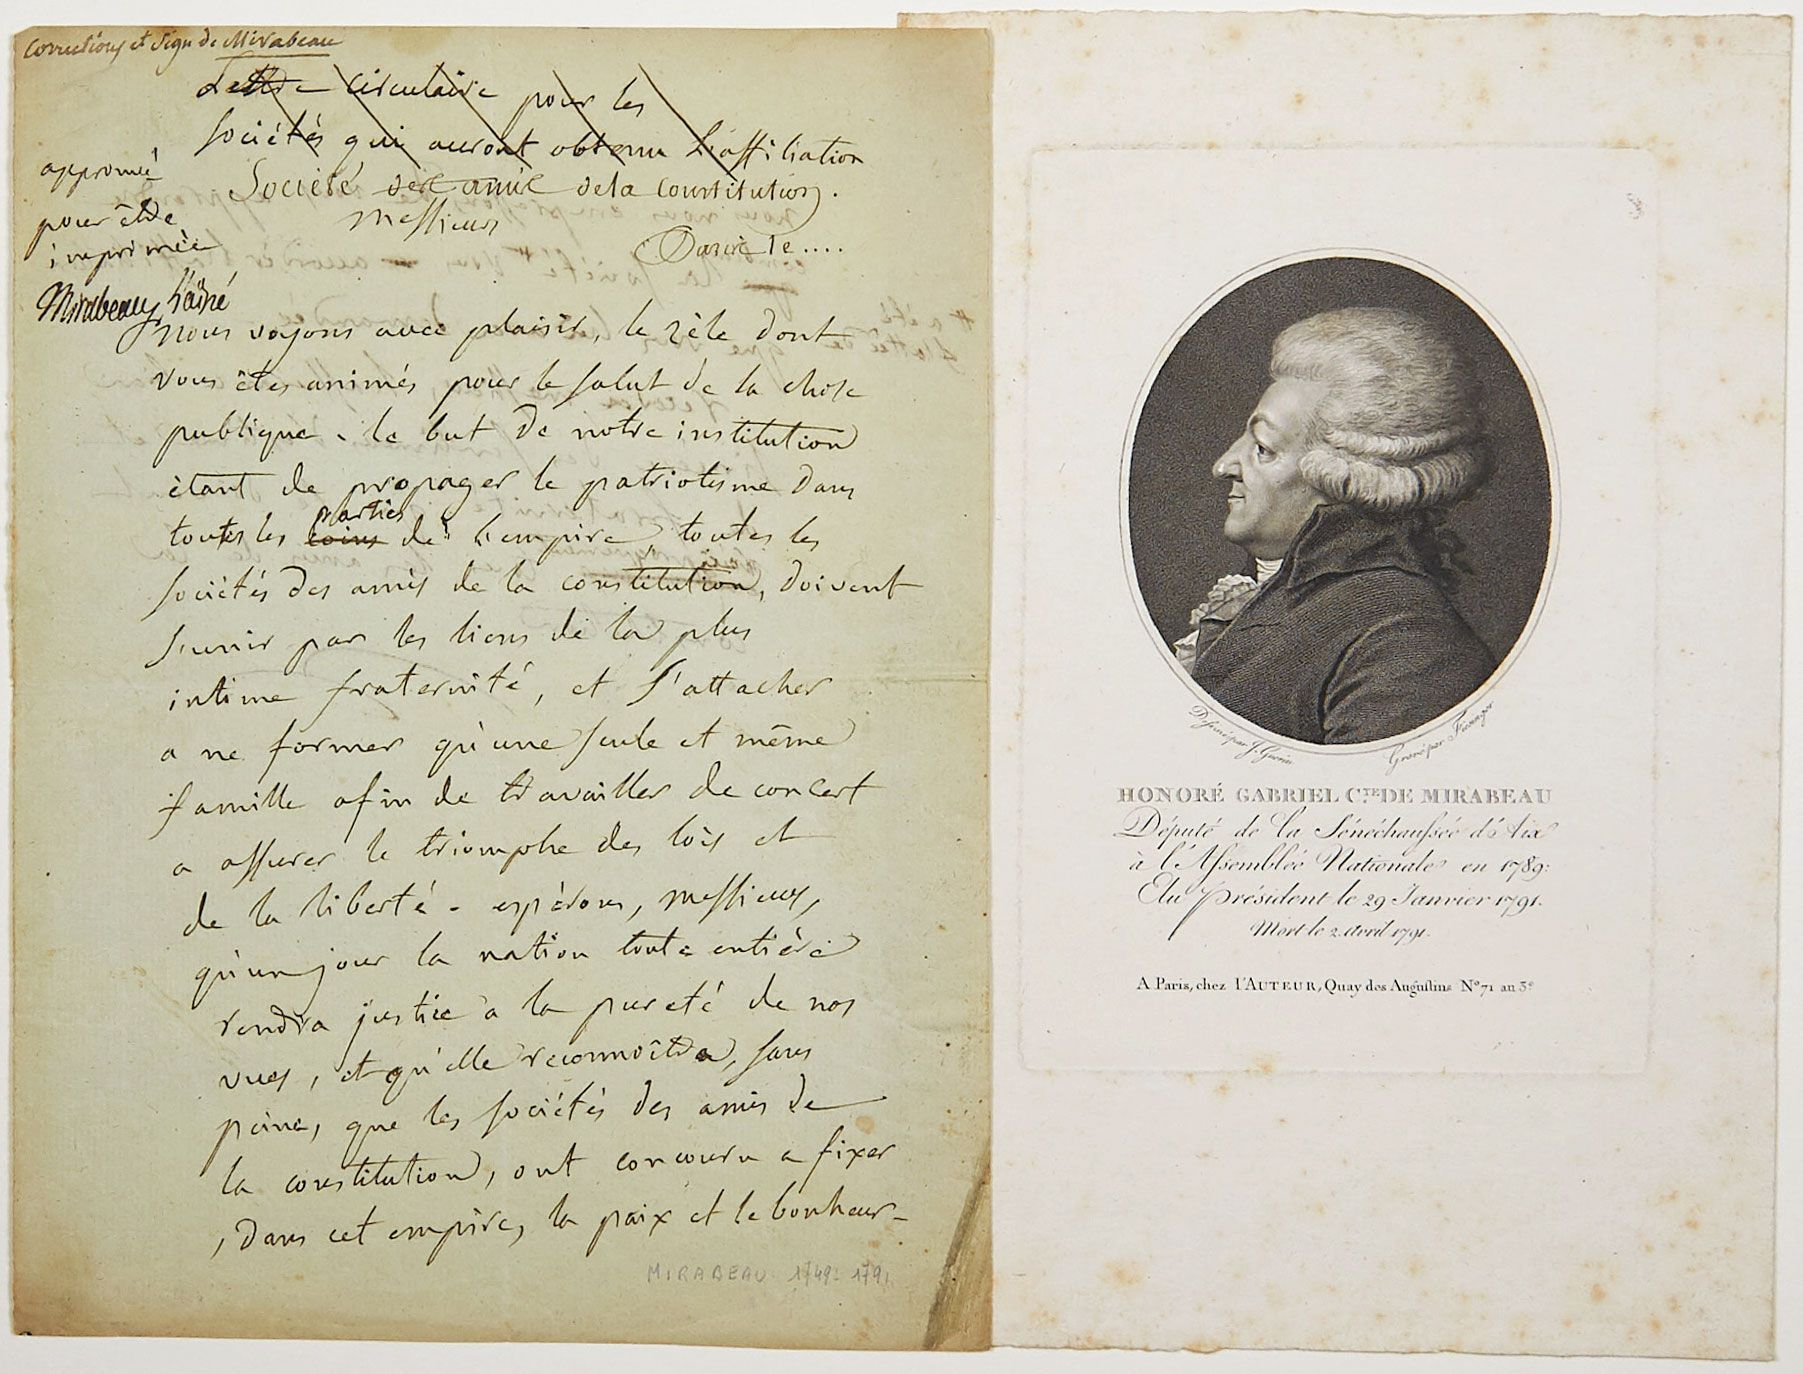 Corrections et sign de Mirabeau
Lettre circulaire pour les
sociétés qui auront obtenu l'affiliation
approuvé
pour être
imprimée
Mirabeau l'aîné
Société des amis de la Constitution.
Messieurs
Paris le....
nous voyons avec plaisir, le zèle dont
vous êtes animés pour le salut de la chose
publique. le but de notre institution
étant de propager le patriotisme dans
parties
toutes les coins de l'empire, toutes les
sociétés des amis de la constitution, doivent
s'unir par les liens de la plus
intime fraternité, et s'attacher
a ne former qu'une seule et même
famille afin de travailler de concert
a assurer le triomphe des lois et
de la liberté - espérons, messieurs,
qu'un jour la nation toute entière
rendra justice a la pureté de nos
vues, et qu'elle reconnoîtra, sans
peine, que les sociétés des amis de
la constitution, ont concouru a fixer
, dans cet empire, la paix et le bonheur -
MIRABEAU 1749-1791
Dessiné par J. Guerin
Gravé par Fiesinger
HONORÉ GABRIEL C.TE DE MIRABEAU
Député de la Sénéchaussée d'Aix
à l'Assemblée Nationale en 1789:
Elu Président le 29 Janvier 1791.
Mort le 2 Avril 1791.
A Paris, chez l'AUTEUR, Quay des Augustins N° 71 au 3e